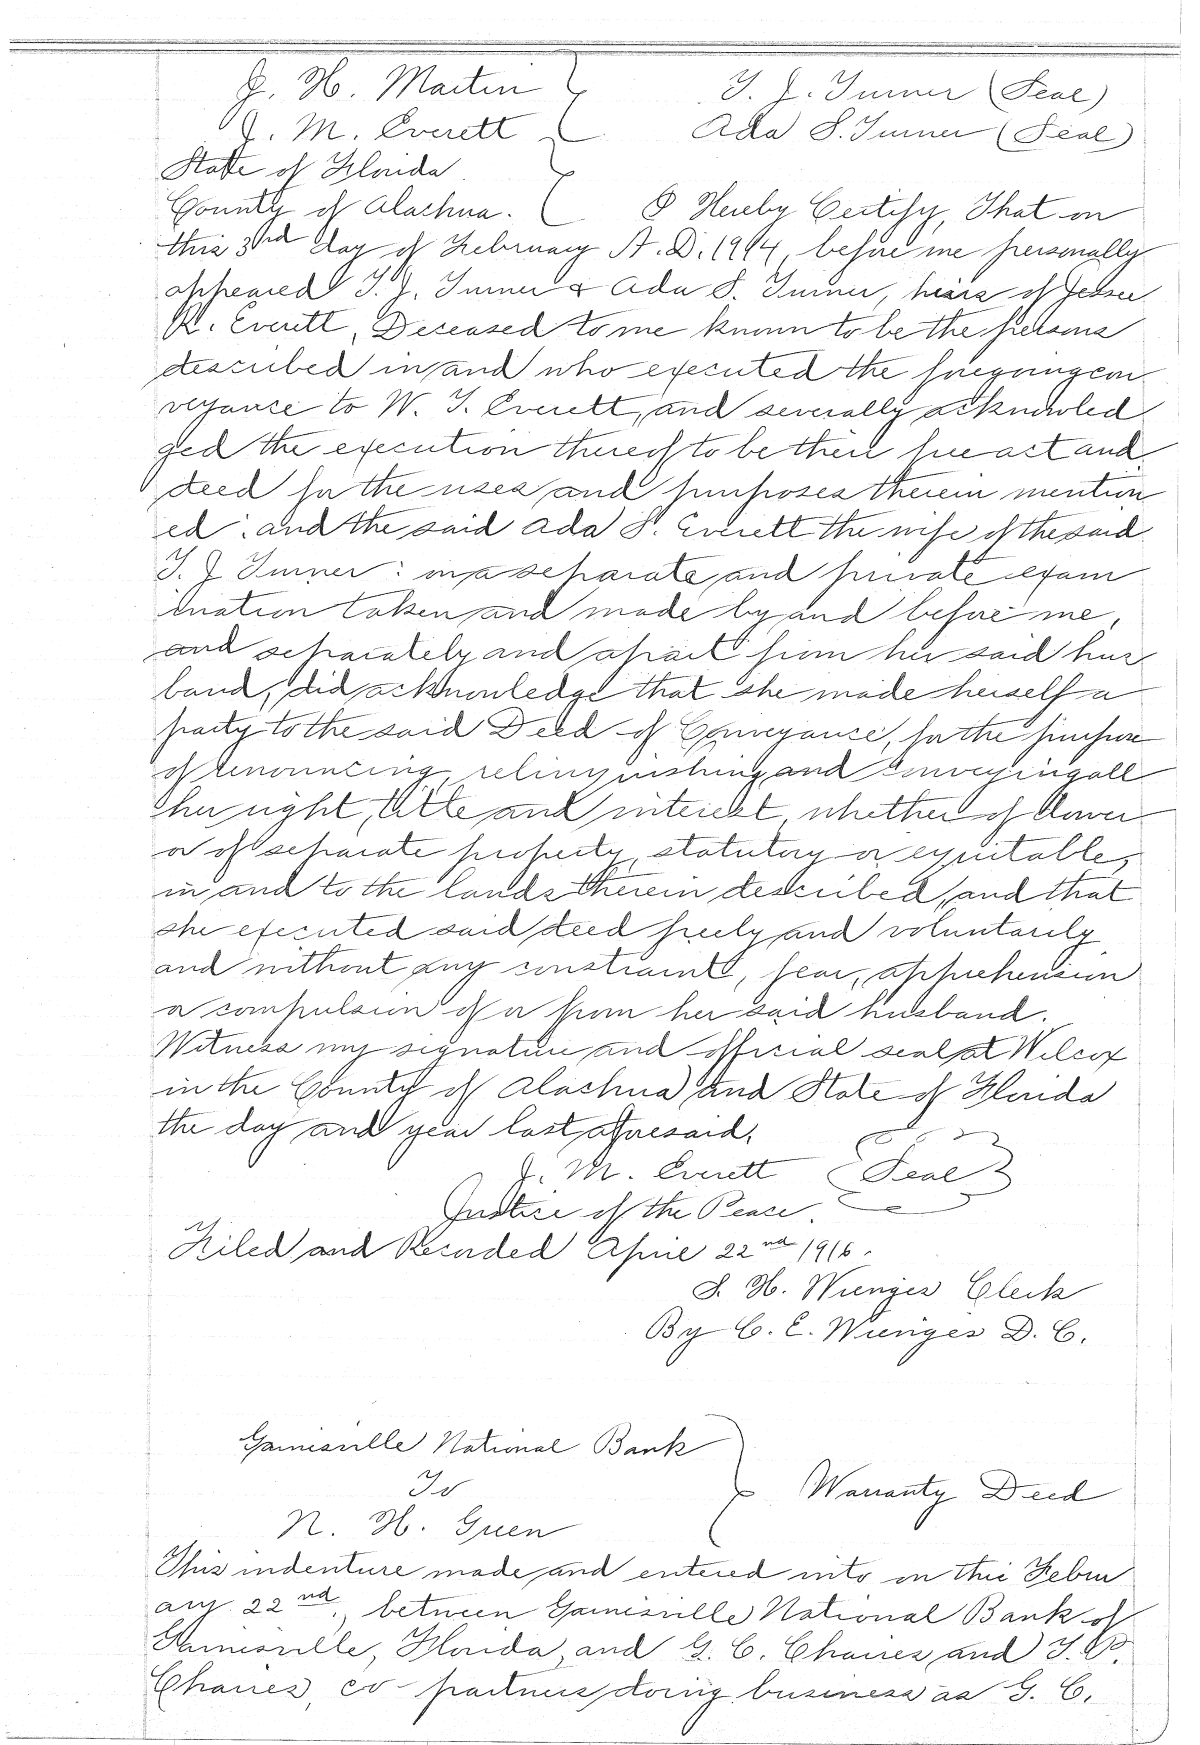 J. H. Martin T. J. Turner (Seal)
J. M. Everett Ada S. Turner (Seal)
State of Florida
County of Alachua. I Hereby Certify, That on
this 3rd day of February A.D. 1914, before me personally
appeared T. J. Turner & Ada S. Turner, heirs of Jesse
R. Everett, Deceased to me known to be the persons
described in and who executed the foregoing con
veyance to W. T. Everett, and severally acknowled
ged the execution thereof to be their free act and
deed for the uses and purposes therein mention
ed: and the said Ada S. Everett the wife of the said
T. J Turner: on a separate and private exam
ination taken and made by and before me,
and separately and apart from her said hus
band, did acknowledge that she made herself a
party to the said Deed of Conveyance, for the purpose
of renouncing, relinquishing and conveying all
her right, title and interest, whether of dower
or of separate property, statutory or equitable,
in and to the lands therein described, and that
she executed said deed freely and voluntarily
and without any constraint, fear, apprehension
or compulsion of or from her said husband.
Witness my signature and official seal at Wilcox
in the County of Alachua and State of Florida
the day and year last aforesaid.
J. M. Everett (Seal)
Justice of the Peace.
Filed and Recorded April 22nd 1916.
S. H. Wienges Clerk
By C. E. Wienges D. C.
Gainesville National Bank
To Warranty Deed
N. H. Green
This indenture made and entered into on this Febru
ary 22nd, between Gainesville National Bank of
Gainesville, Florida, and G. C. Chaires and T. P.
Chaires, co-partners doing business as G. C.